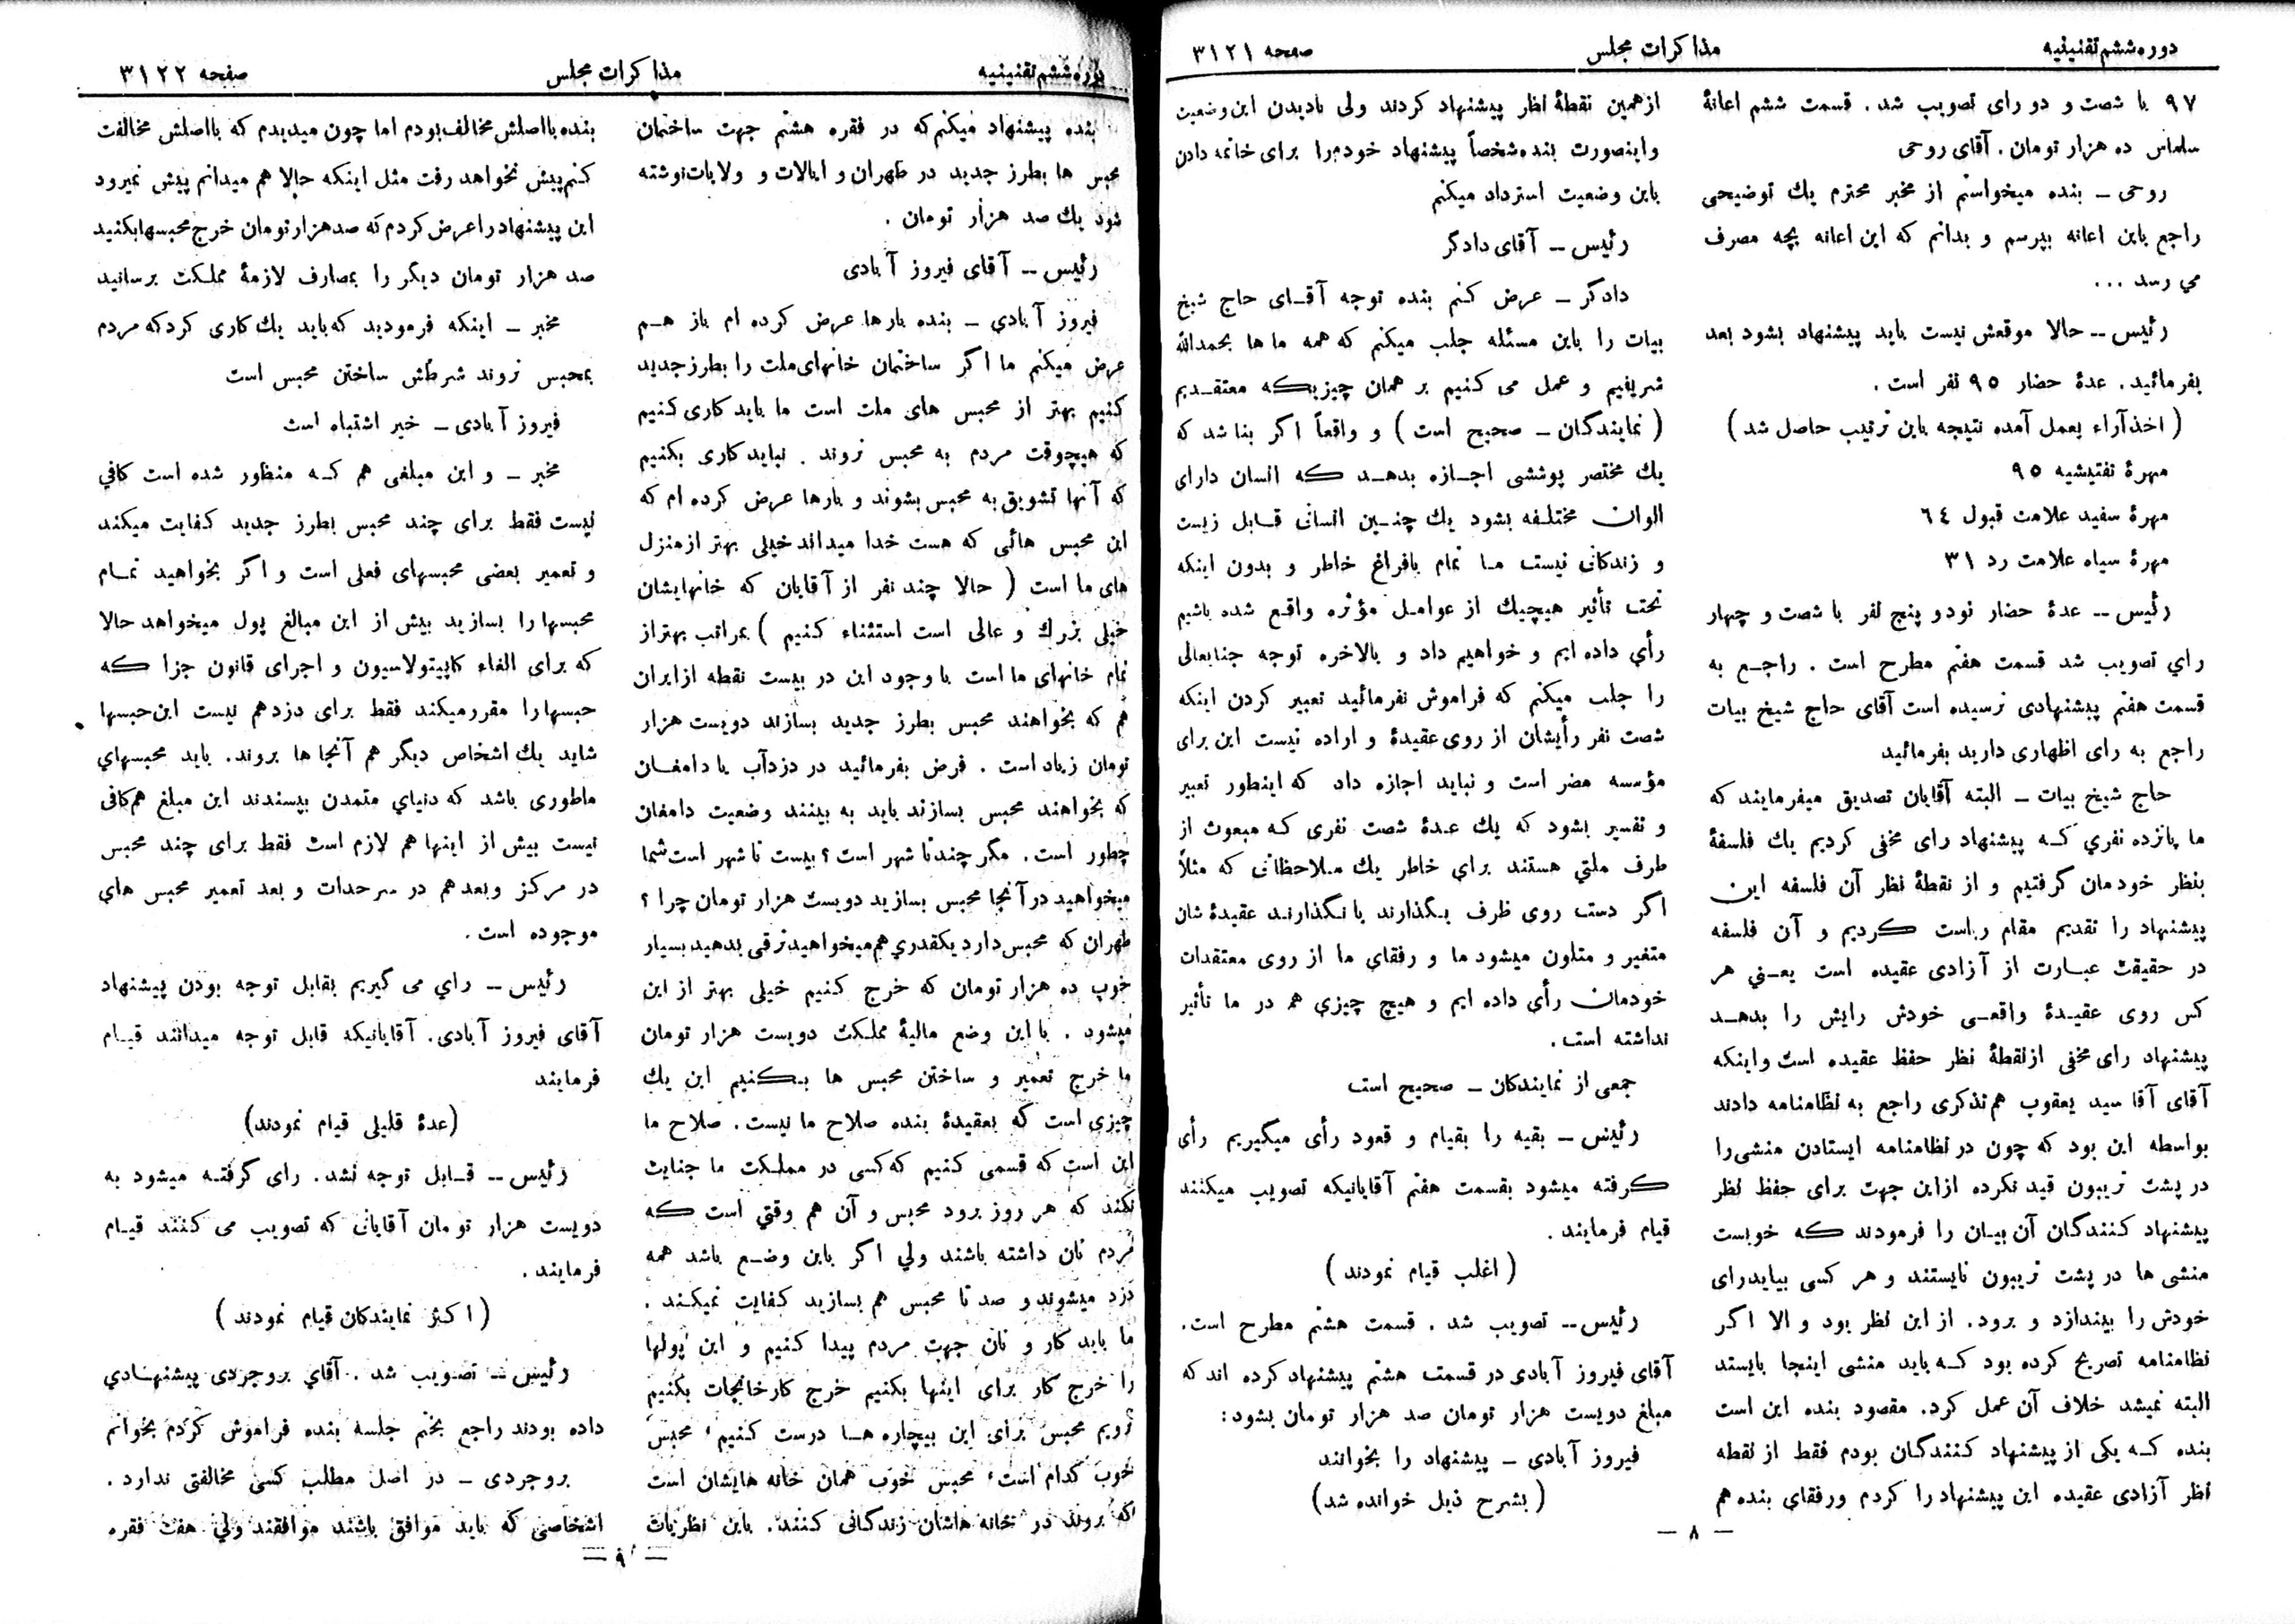 دوره ششم تقنینیه
مذاکرات مجلس
صفحه ۳۱۲۱
۹۷ با شصت و دو رای تصویب شد . قسمت ششم اعانهٔ
سلماس ده هزار تومان . آقای روحی
روحی ــ بنده میخواستم از مخبر محترم یك توضیحی
راجع باین اعانه بپرسم و بدانم که این اعانه بچه مصرف
می رسد ...
رئیس ــ حالا موقعش نیست باید پیشنهاد بشود بعد
بفرمائید . عدهٔ حضار ۹۵ نفر است .
( اخذ آراء بعمل آمده نتیجه باین ترتیب حاصل شد )
مهرهٔ تفتیشیه ۹۵
مهرهٔ سفید علامت قبول ٦٤
مهرهٔ سیاه علامت رد ۳۱
رئیس ــ عدهٔ حضار نود و پنج نفر با شصت و چهار
راي تصویب شد قسمت هفتم مطرح است . راجع به
قسمت هفتم پیشنهادی نرسیده است آقای حاج شیخ بیات
راجع به رای اظهاری دارید بفرمائید
حاج شیخ بیات ــ البته آقایان تصدیق میفرمایند که
ما پانزده نفري که پیشنهاد رای مخفی کردیم یك فلسفهٔ
بنظر خودمان گرفتیم و از نقطهٔ نظر آن فلسفه این
پیشنهاد را تقدیم مقام ریاست کردیم و آن فلسفه
در حقیقت عبارت از آزادی عقیده است یعني هر
کس روی عقیدهٔ واقعی خودش رایش را بدهد
پیشنهاد رای مخفی ازنقطهٔ نظر حفظ عقیده است واینکه
آقای آقا سید یعقوب هم تذکری راجع به نظامنامه دادند
بواسطه این بود که چون در نظامنامه ایستادن منشی را
در پشت تریبون قید نکرده ازاین جهت برای حفظ نظر
پیشنهاد کنندگان آن بیان را فرمودند که خوبست
منشی ها در پشت تریبون نایستند و هر کسی بیاید رای
خودش را بیندازد و برود . از این نظر بود و الا اگر
نظامنامه تصریح کرده بود که باید منشی اینجا بایستد
البته نمیشد خلاف آن عمل کرد . مقصود بنده این است
بنده که یکی از پیشنهاد کنندگان بودم فقط از نقطه
نظر آزادی عقیده این پیشنهاد را کردم ورفقای بنده هم
ازهمین نقطهٔ نظر پیشنهاد کردند ولی نادیدن این وضعیت
و اینصورت بنده شخصاً پیشنهاد خودم را برای خاتمه دادن
باین وضعیت استرداد میکنم
رئیس ــ آقای دادگر
دادگر ــ عرض کنم بنده توجه آقای حاج شیخ
بیات را باین مسئله جلب میکنم که همه ما ها بحمدالله
شریفیم و عمل می کنیم بر همان چیزیکه معتقدیم
( نمایندگان ــ صحیح است ) و واقعاً اگر بنا شد که
یك مختصر پوششی اجازه بدهد که انسان دارای
الوان مختلفه بشود یك چنین انسانی قابل زیست
و زندگانی نیست ما تمام بافراغ خاطر و بدون اینکه
تحت تأثیر هیچیك از عوامل مؤثره واقع شده باشیم
رأي داده ایم و خواهیم داد و بالاخره توجه جنابعالی
را جلب میکنم که فراموش نفرمائید تعبیر کردن اینکه
شصت نفر رأیشان از روی عقیدهٔ و اراده نیست این برای
مؤسسه مضر است و نباید اجازه داد که اینطور تعبیر
و تفسیر بشود که یك عدهٔ شصت نفری که مبعوث از
طرف ملتي هستند براي خاطر یك ملاحظاتی که مثلاً
اگر دست روی ظرف بگذارند یا نگذارند عقیدهٔ شان
متغیر و متلون میشود ما و رفقاي ما از روی معتقدات
خودمان رأی داده ایم و هیچ چیزي هم در ما تأثیر
نداشته است .
جمعی از نمایندگان ــ صحیح است
رئیس ــ بقیه را بقیام و قعود رأی میگیریم رأی
گرفته میشود بقسمت هفتم آقایانیکه تصویب میکنند
قیام فرمایند .
( اغلب قیام نمودند )
رئیس ــ تصویب شد . قسمت هشتم مطرح است .
آقای فیروز آبادی در قسمت هشتم پیشنهاد کرده اند که
مبلغ دویست هزار تومان صد هزار تومان بشود :
فیروز آبادی ــ پیشنهاد را بخوانند
( بشرح ذیل خوانده شد )
— ۸ —
دوره ششم تقنینیه
مذاکرات مجلس
صفحه ۳۱۲۲
بنده پیشنهاد میکنم که در فقره هشتم جهت ساختمان
محبس ها بطرز جدید در طهران و ایالات و ولایات نوشته
شود یك صد هزار تومان .
رئیس ــ آقای فیروز آبادی
فیروز آبادي ــ بنده بارها عرض کرده ام باز هم
عرض میکنم ما اگر ساختمان خانهای ملت را بطرز جدید
کنیم بهتر از محبس های ملت است ما باید کاری کنیم
که هیچوقت مردم به محبس نروند . نباید کاری بکنیم
که آنها تشویق به محبس بشوند و بارها عرض کرده ام که
این محبس هائی که هست خدا میداند خیلی بهتر از منزل
های ما است ( حالا چند نفر از آقایان که خانهایشان
خیلی بزرك و عالی است استثناء کنیم ) بمراتب بهتر از
تمام خانهای ما است با وجود این در بیست نقطه از ایران
هم که بخواهند محبس بطرز جدید بسازند دویست هزار
تومان زیاد است . فرض بفرمائید در دزدآب یا دامغان
که بخواهند محبس بسازند باید به بینند وضعیت دامغان
چطور است . مگر چند تا شهر است ؟ بیست تا شهر است شما
میخواهید در آنجا محبس بسازید دویست هزار تومان چرا ؟
طهران که محبس دارد یکقدري هم میخواهید ترقی بدهید بسیار
خوب ده هزار تومان که خرج کنیم خیلی بهتر از این
میشود . با این وضع مالیهٔ مملکت دویست هزار تومان
ما خرج تعمیر و ساختن محبس ها بکنیم این یك
چیزی است که بعقیدهٔ بنده صلاح ما نیست . صلاح ما
این است که قسمی کنیم که کسی در مملکت ما جنایت
نکند که هر روز برود محبس و آن هم وقتي است که
مردم نان داشته باشند ولي اگر باین وضع باشد همه
دزد میشوند و صد تا محبس هم بسازید کفایت نمیکند .
ما باید کار و نان جهت مردم پیدا کنیم و این پولها
را خرج کار برای اینها بکنیم خرج کارخانجات بکنیم
نرویم محبس برای این بیچاره ها درست کنیم ، محبس
خوب کدام است ، محبس خوب همان خانه هایشان است
که بروند در خانه هاشان زندگانی کنند . باین نظریات
بنده بااصلش مخالف بودم اما چون میدیدم که بااصلش مخالفت
کنم پیش نخواهد رفت مثل اینکه حالا هم میدانم پیش نمیرود
این پیشنهاد را عرض کردم که صد هزار تومان خرج محبسها بکنید
صد هزار تومان دیگر را بمصارف لازمهٔ مملکت برسانید
مخبر ــ اینکه فرمودید که باید یك کاری کرد که مردم
بمحبس نروند شرطش ساختن محبس است
فیروز آبادی ــ خیر اشتباه است
مخبر ــ و این مبلغی هم که منظور شده است کافي
نیست فقط برای چند محبس بطرز جدید کفایت میکند
و تعمیر بعضی محبسهای فعلی است و اگر بخواهید تمام
محبسها را بسازید بیش از این مبالغ پول میخواهد حالا
که برای الغاء کاپیتولاسیون و اجرای قانون جزا که
حبسها را مقرر میکند فقط برای دزد هم نیست این حبسها
شاید یك اشخاص دیگر هم آنجا ها بروند . باید محبسهاي
ماطوری باشد که دنیاي متمدن بپسندند این مبلغ هم کافی
نیست بیش از اینها هم لازم است فقط برای چند محبس
در مرکز و بعد هم در سرحدات و بعد تعمیر محبس های
موجوده است .
رئیس ــ راي می گیریم بقابل توجه بودن پیشنهاد
آقای فیروز آبادی . آقایانیکه قابل توجه میدانند قیام
فرمایند
(عدهٔ قلیلی قیام نمودند)
رئیس ــ قابل توجه نشد . رای گرفته میشود به
دویست هزار تومان آقایانی که تصویب می کنند قیام
فرمایند .
( اکثر نمایندگان قیام نمودند )
رئیس ــ تصویب شد . آقاي بروجردی پیشنهادي
داده بودند راجع بختم جلسه بنده فراموش کردم بخوانم
بروجردی ــ در اصل مطلب کسی مخالفتی ندارد .
اشخاصی که باید موافق باشند موافقند ولي هفت فقره
— ۹ —